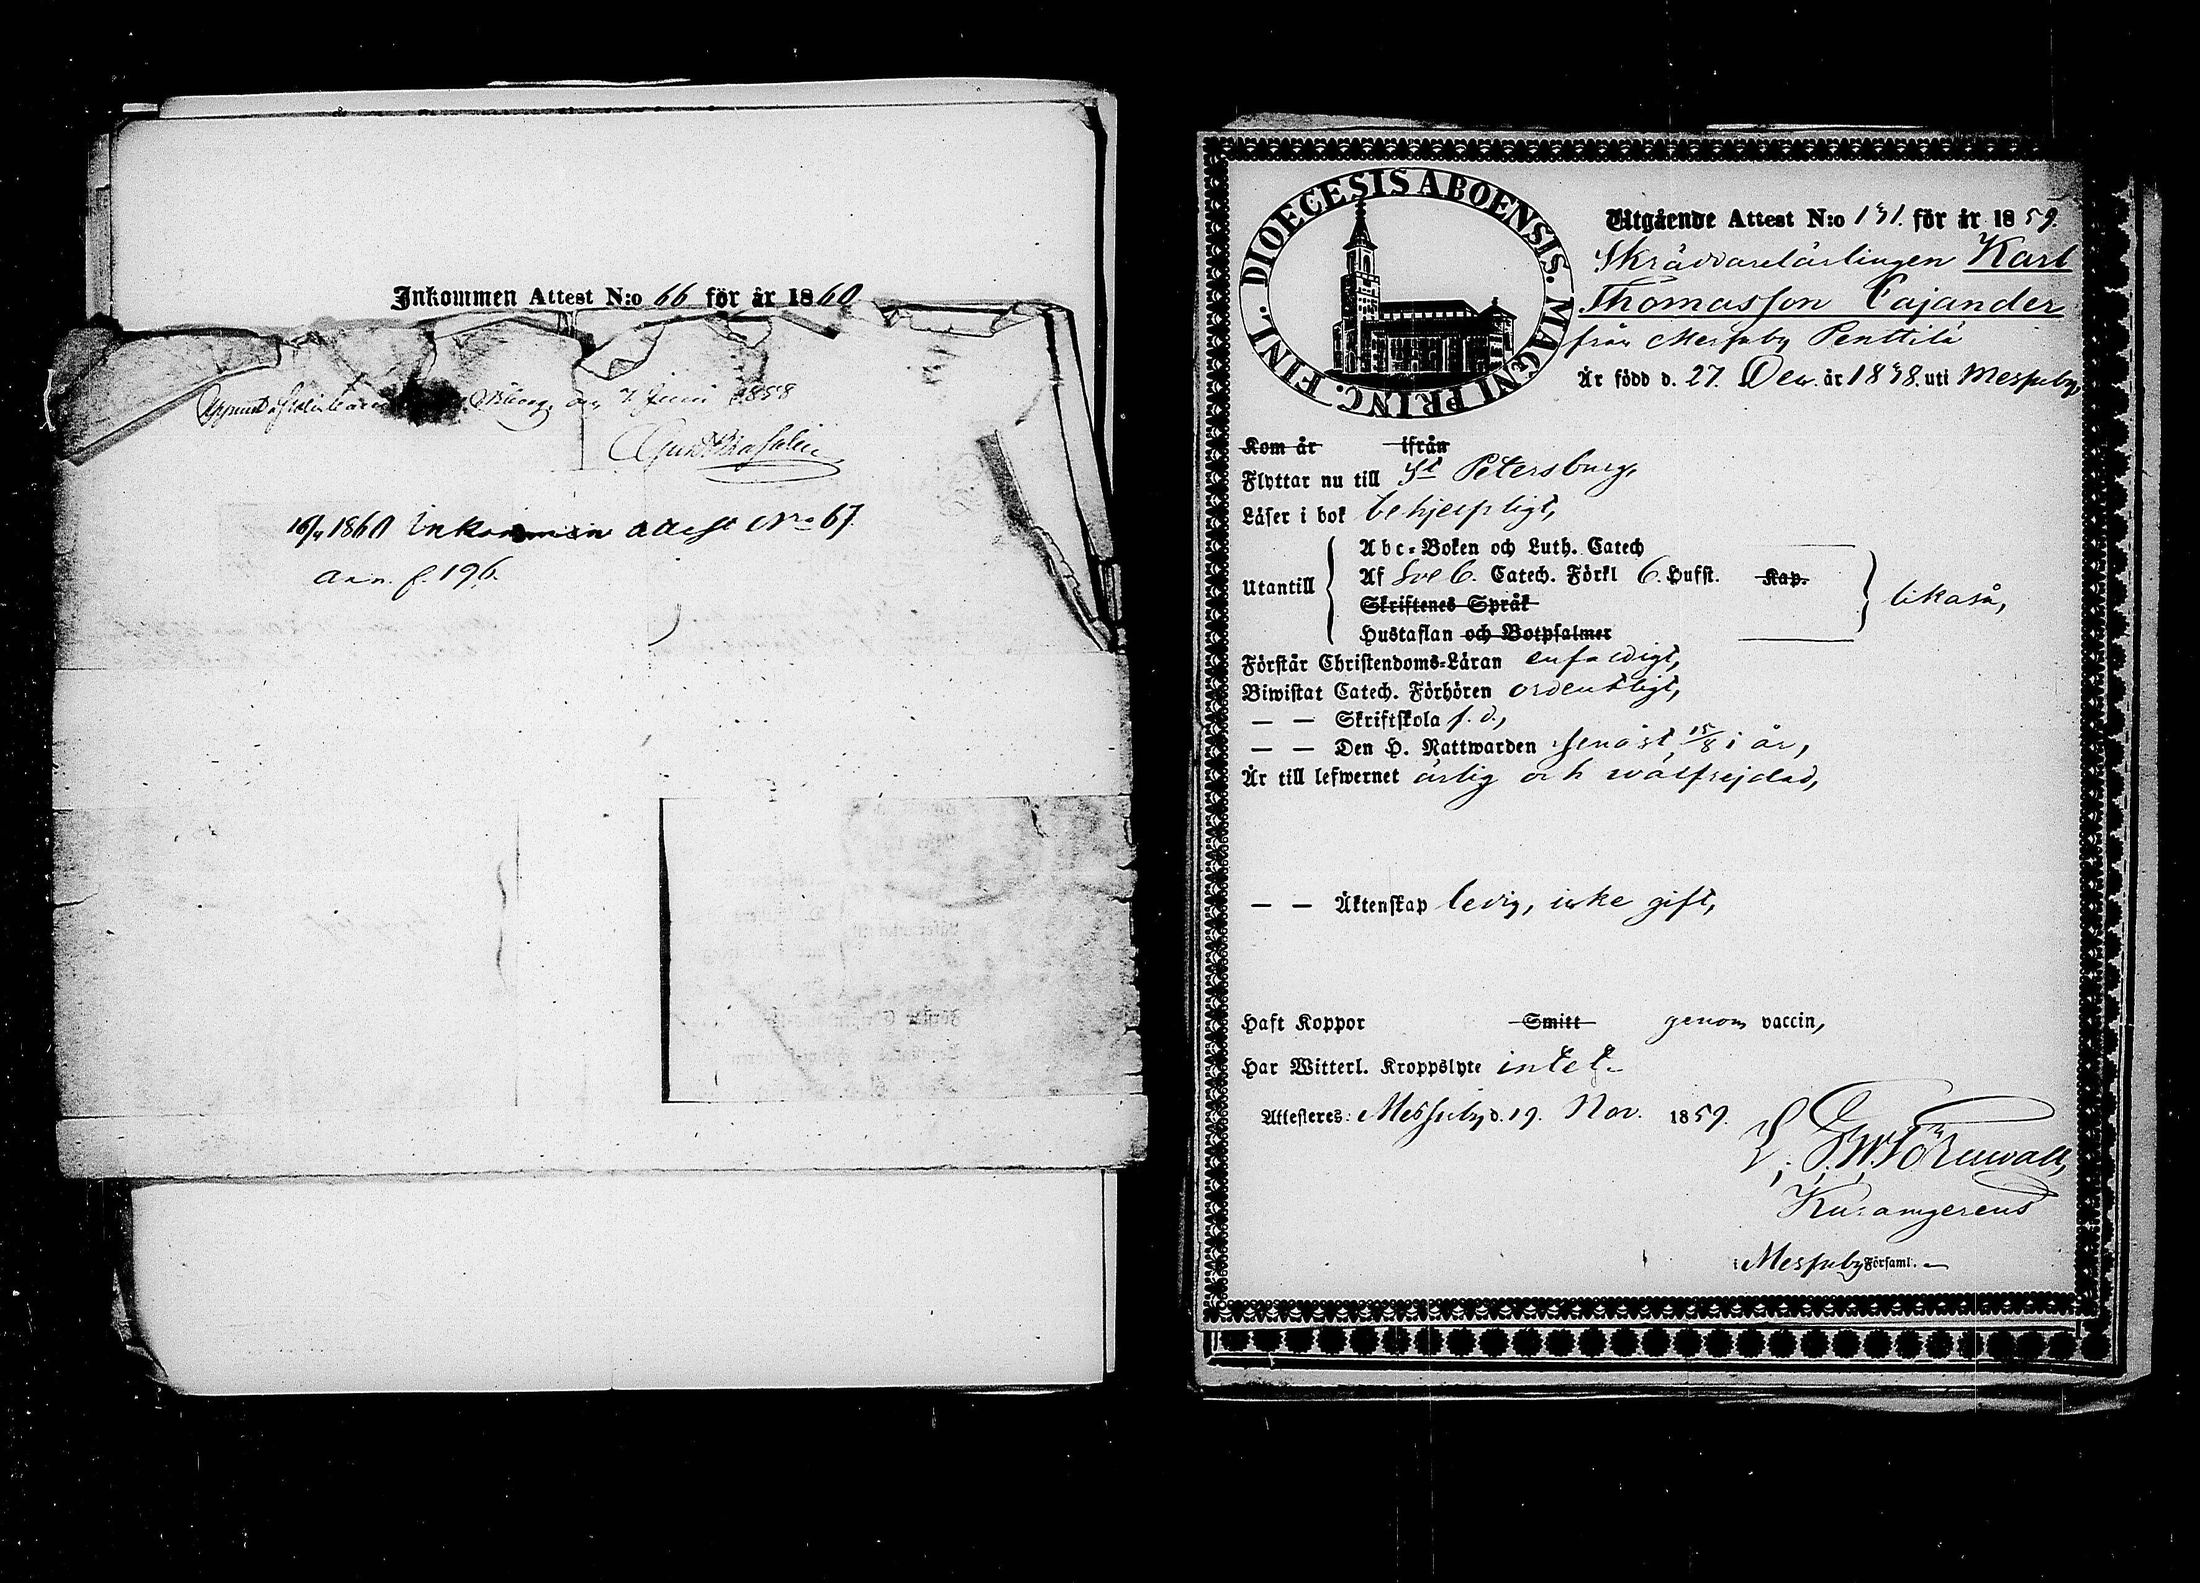 Inkommen Attest N:o 66 för år 1860
den 7 Juni 1858
16/4 1860 Inkommen attest No 67.
ann. f. 196.
DIOECESIS ABOENSIS. MAGNI PRINC. FINL.
Utgående Attest N:o 131. för år 1859.
Skräddarelärlingen Karl
Thomasson Cajander
från Messuby Penttilä
Är född d. 27. Dec. år 1838. uti Messuby,
Kom år ifrån
Flyttar nu till St Petersburg,
Läser i bok behjelpligt,
Abc-Boken och Luth. Catech
Utantill Af Sveb. Catech. Förkl 6. Hufst. Kap. likaså,
Skriftenes Språk
Hustaflan och Botpsalmer
Förstår Christendoms-Läran enfaldigt,
Biwistat Catech. Förhören ordentligt,
— — Skriftskola f. d.,
— — Den H. Nattwarden senast 15/8 i år,
Är till lefwernet ärlig och wälfrejdad,
— — Äktenskap ledig, icke gift,
Haft Koppor Smitt genom vaccin,
Har Witterl. Kroppslyte intet.
Attesteres: Messuby d. 19. Nov. 1859.
Törnwall,
Kuramgerens
i Messuby Församl.